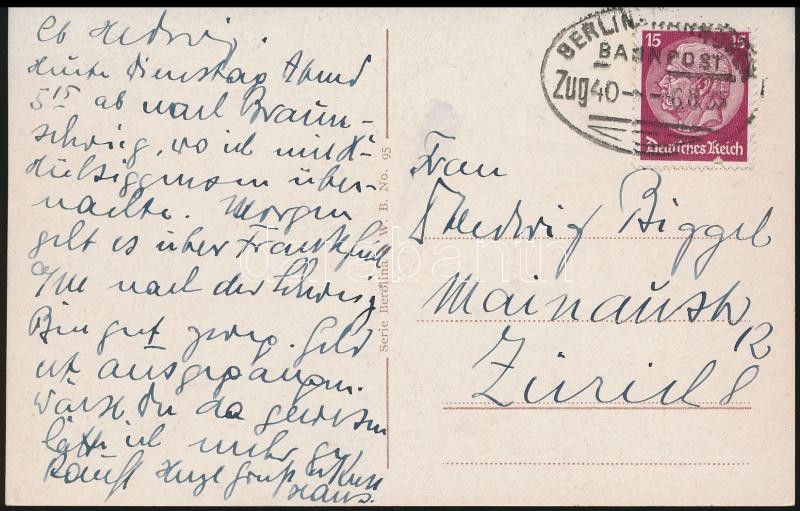 Lb Hedwig.
Heute Dienstag Abend
5 15 ab nach Braun-
schweig, wo ich mit H.
über-
nachte. Morgen
geht es über Frankfurt
a/M nach der Schweiz
Bin gut zweg. Geld
ist ausgegangen.
Wärst Du da gewesen
hätte ich mehr ge-
kauft Herzl Gruß u Kuss
Hans.
Serie Berolina W. B. No. 95
BERLIN
BAHNPOST
Zug 40
15 15
Deutsches Reich
Frau
Hedwig Biggel
Mainaustr
12
Zürich 8
darabanth